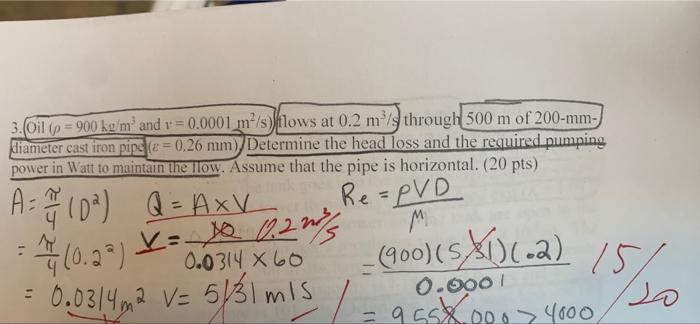 3. Oil (ρ = 900 kg/m³ and v = 0.0001 m²/s) flows at 0.2 m³/s through 500 m of 200-mm-
diameter cast iron pipe (ε = 0.26 mm). Determine the head loss and the required pumping
power in Watt to maintain the flow. Assume that the pipe is horizontal. (20 pts)
A = π/4 (D²) Q = A×V Re = ρVD/μ
= π/4 (0.2²) V = 10/0.0314 × 60 0.2 m³/s = (900)(5.31)(.2)/0.0001 15/20
= 0.0314 m² V = 5.31 m/s
= 9558,000 > 4000